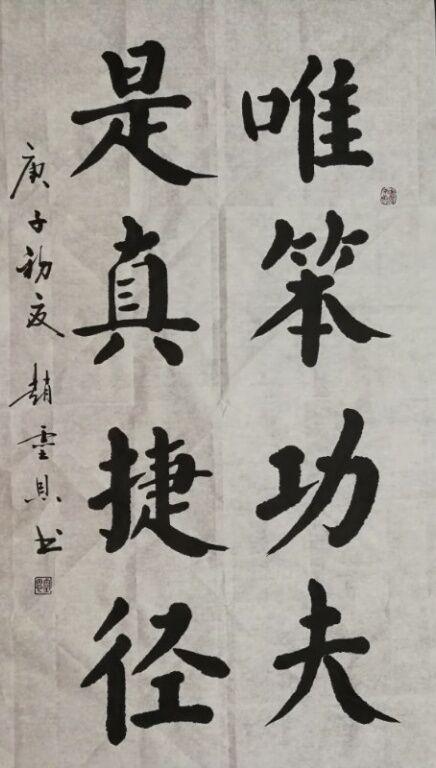 唯笨功夫
是真捷径
庚子初夏 趙靈具书